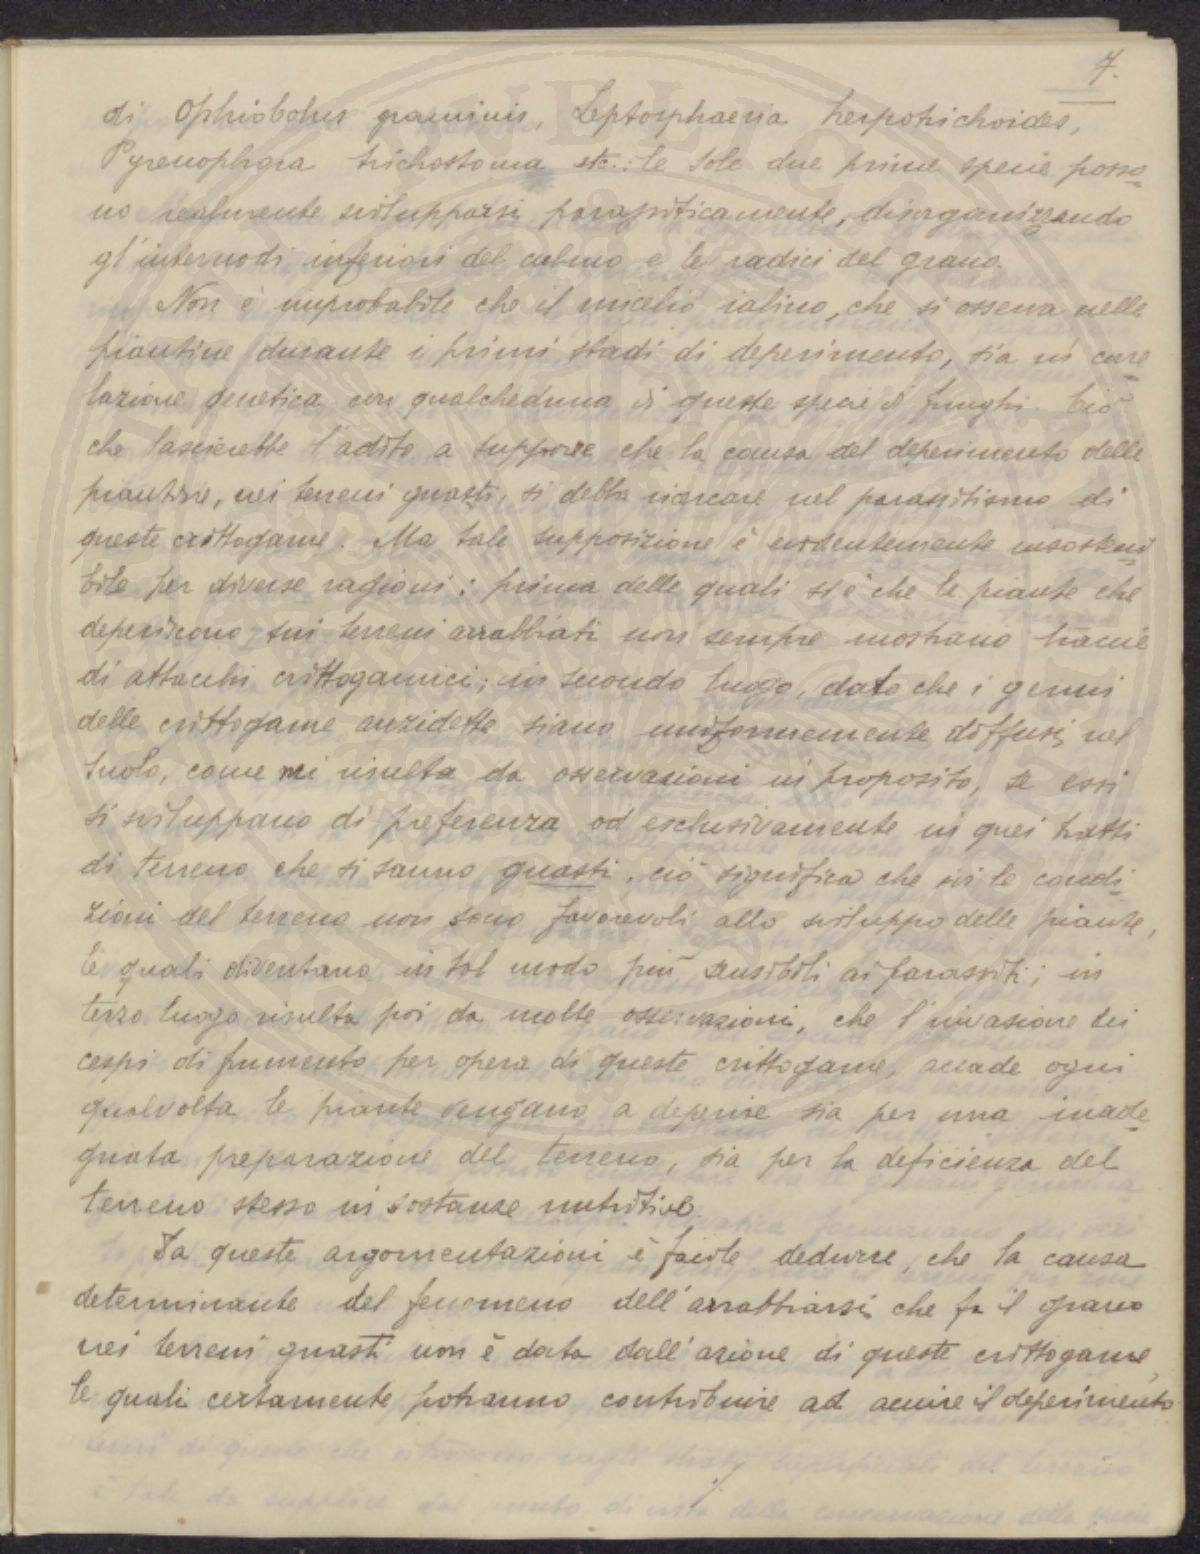 7.
di Ophiobolus graminis, Leptosphaeria herpotrichoides,
Pyrenophora trichostoma etc.: le sole due prime specie posso-
no realmente svilupparsi parassiticamente, disorganizzando
gl'internodi inferiori del culmo e le radici del grano.
Non è improbabile che il micelio ialino, che si osserva nelle
piantine durante i primi stadi di deperimento, sia in corre-
lazione genetica con qualcheduna di queste specie di funghi. Ciò
che lascierebbe l'adito a supporre che la causa del deperimento delle
piantine, nei terreni guasti, si debba ricercare nel parassitismo di
queste crittogame. Ma tale supposizione è evidentemente insosteni-
bile per diverse ragioni: prima delle quali si è che le piante che
deperiscono sui terreni arrabbiati non sempre mostrano traccie
di attacchi crittogamici; in secondo luogo, dato che i germi
delle crittogame anzidette siano uniformemente diffusi nel
suolo, come mi risulta da osservazioni in proposito, se essi
si sviluppano di preferenza od esclusivamente in quei tratti
di terreno che si sanno guasti, ciò significa che ivi le condi-
zioni del terreno non sono favorevoli allo sviluppo delle piante,
le quali diventano in tal modo più sensibili ai parassiti; in
terzo luogo risulta poi da molte osservazioni, che l'invasione dei
cespi di frumento per opera di queste crittogame, accade ogni
qualvolta le piante vengano a deperire sia per una inade-
guata preparazione del terreno, sia per la deficienza del
terreno stesso in sostanze nutritive.
Da queste argomentazioni è facile dedurre, che la causa
determinante del fenomeno dell'arrabbiarsi che fa il grano
nei terreni guasti non è data dall'azione di queste crittogame,
le quali certamente potranno contribuire ad acuire il deperimento
./.